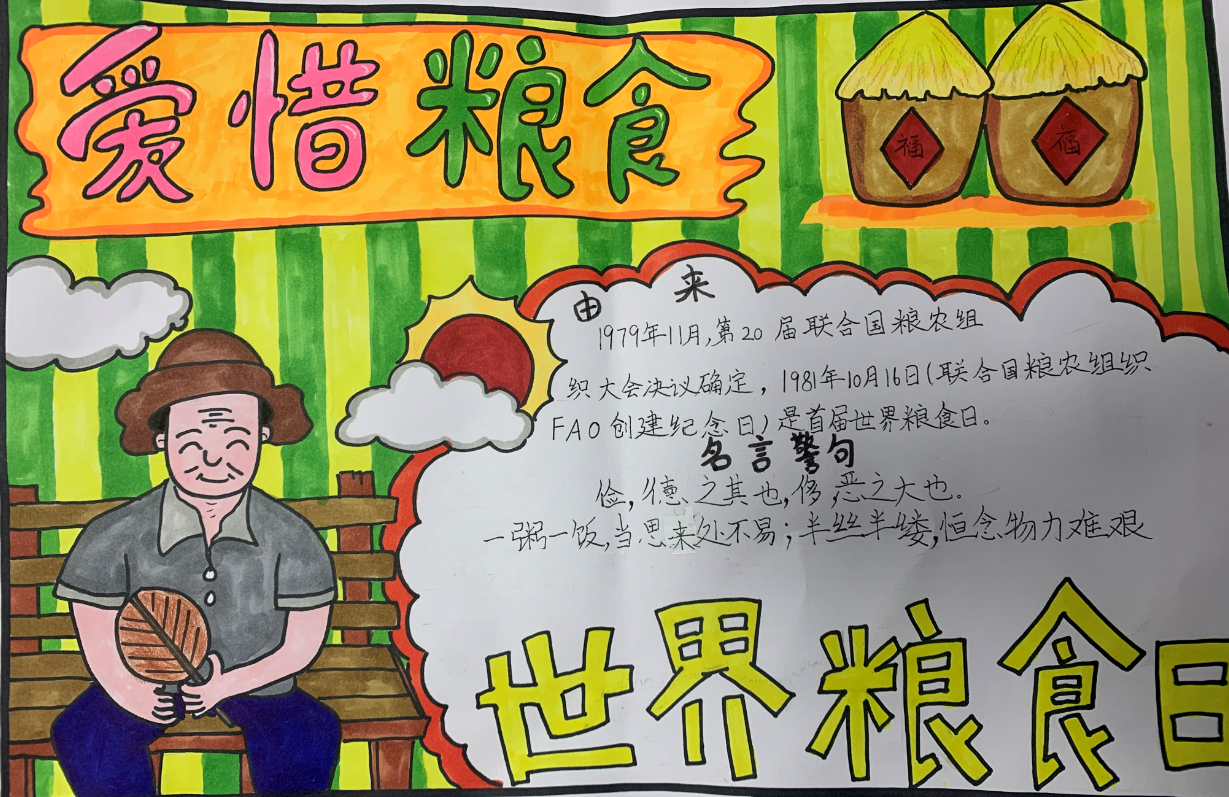 爱惜粮食
福 福
由来
1979年11月,第20届联合国粮农组
织大会决议确定，1981年10月16日(联合国粮农组织
FAO创建纪念日)是首届世界粮食日。
名言警句
俭,德之其也,侈,恶之大也.
一粥一饭,当思来处不易;半丝半缕,恒念物力难艰
世界粮食日